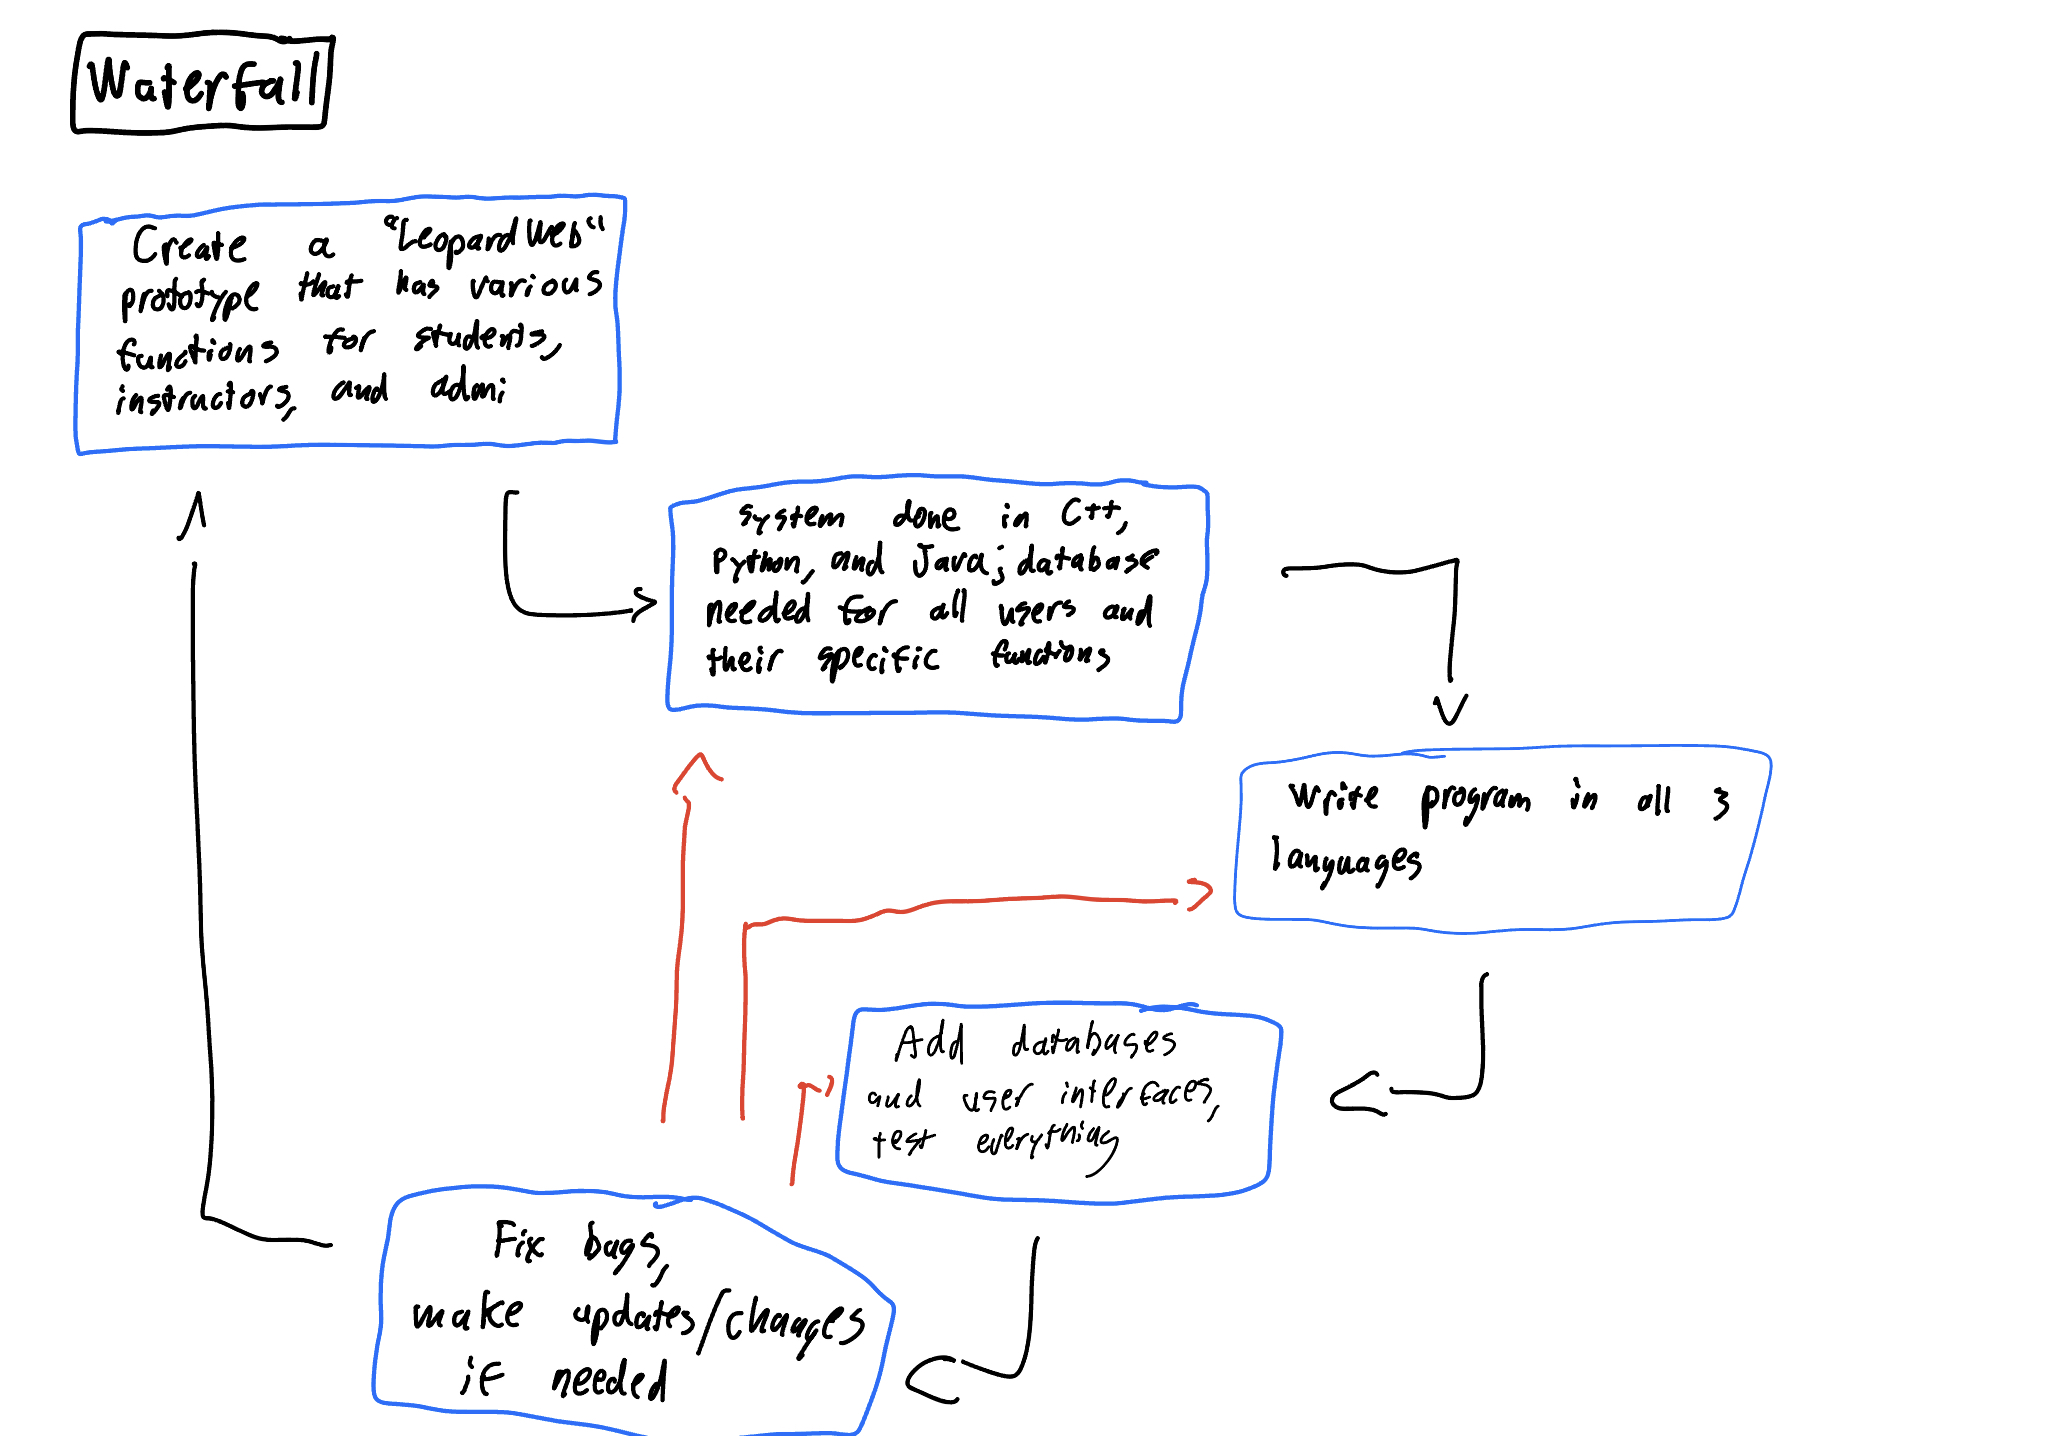 Waterfall
Create a "LeopardWeb"
prototype that has various
functions for students,
instructors, and admi
system done in C++,
Python, and Java; database
needed for all users and
their specific functions
Write program in all 3
languages
Add databases
and user interfaces,
test everything
Fix bugs,
make updates/changes
if needed